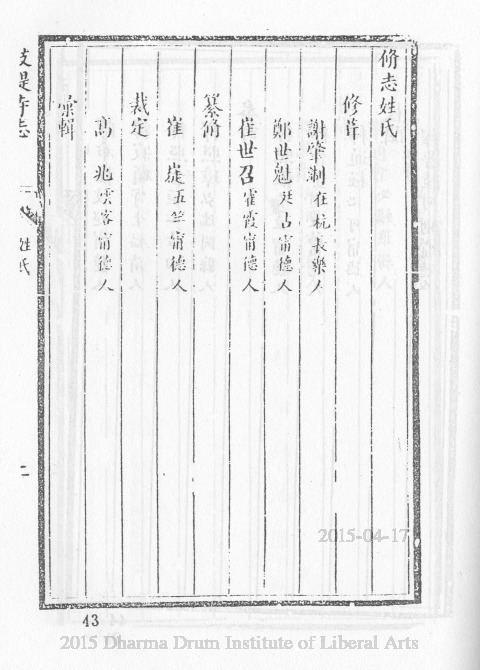 脩志姓氏
修葺
謝肇淛在杭長樂人
鄭世魁 占甯德人
崔世召霍霞甯德人
纂脩
崔嵸五竺甯德人
裁定
髙兆雲客甯德人
彙輯
支提寺志
姓氏
二
43
2015-04-17
2015 Dharma Drum Institute of Liberal Arts